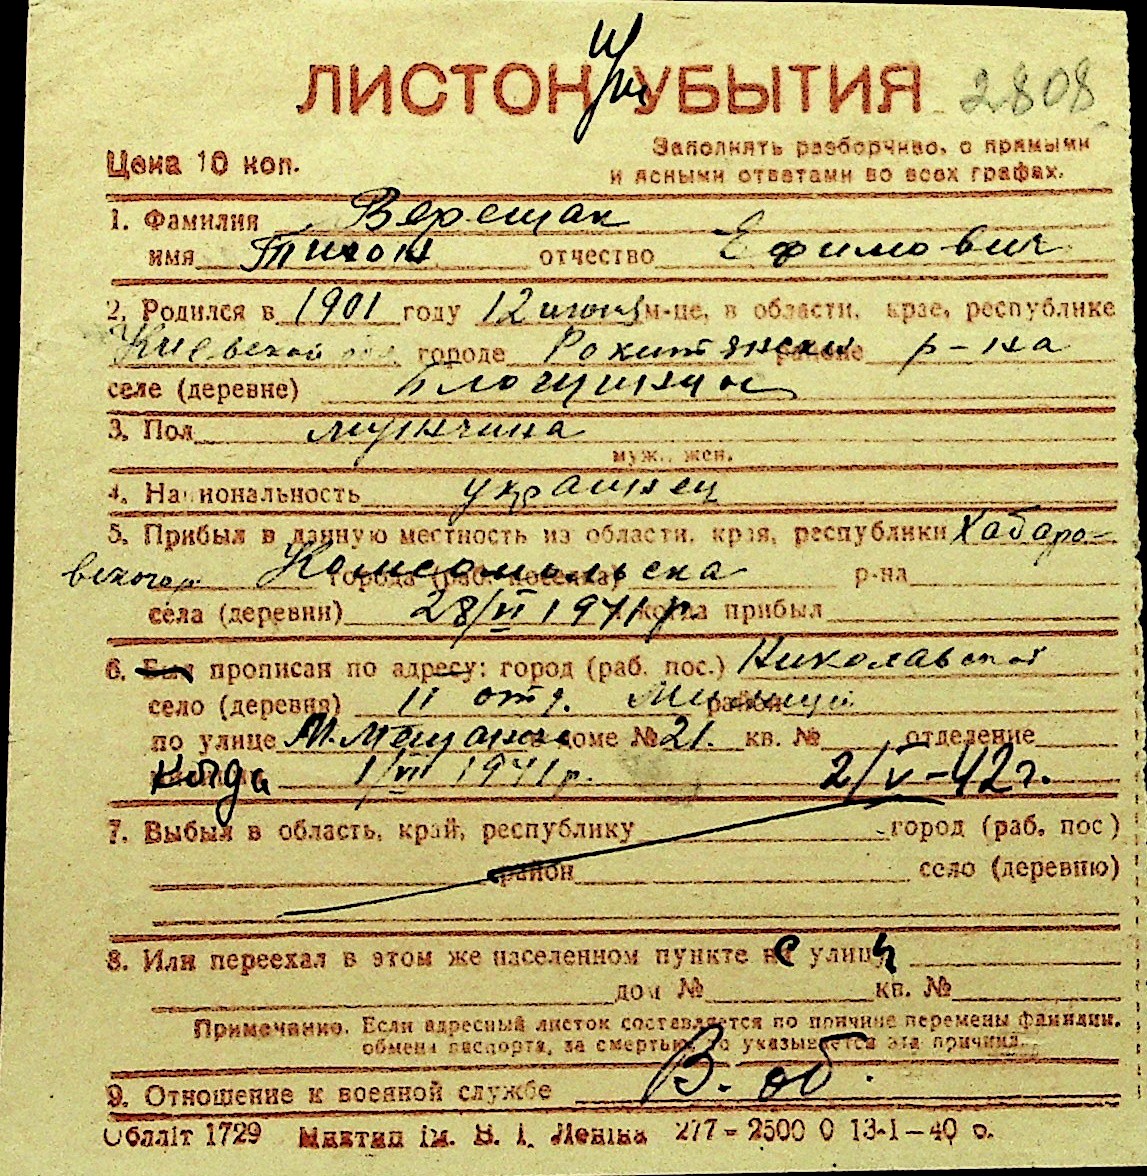 ЛИСТОК УБЫТИЯ 2808
Цена 10 коп.
Заполнять разборчиво, с прямыми
и ясными ответами во всех графах.
1. Фамилия Верещак
имя Тихон отчество Ефимович
2. Родился в 1901 году 12 июня м-це, в области, крае, республике
Киевской городе Рокитянский районе р-на
селе (деревне)
3. Пол мужчина
муж., жен.
4. Национальность украинец
5. Прибыл в данную местность из области, края, республики Хабаро-
вского кр. города (раб. поселка) Комсомольска р-на
села (деревни) 28/VI 1941 г. когда прибыл
6. Был прописан по адресу: город (раб. пос.) Николаевской
село (деревня) II отд. Милиции район
по улице М. Мещанск в доме № 21. кв. № отделение
Когда 1/VII 1941 г. 2/V-42 г.
7. Выбыл в область, край, республику город (раб. пос)
район село (деревню)
8. Или переехал в этом же населенном пункте с улицы
дом № кв. №
Примечание. Если адресный листок составляется по причине перемены фамилии,
обмена паспорта, за смертью, то указывается эта причина.
9. Отношение к военной службе В. об.
Обллiт 1729 Миктип iм. В. I. Ленiна 277-2500 0 13-1-40 р.